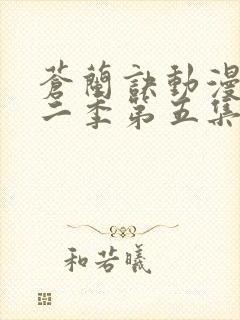 蒼蘭訣動漫
二季第五集
和若曦